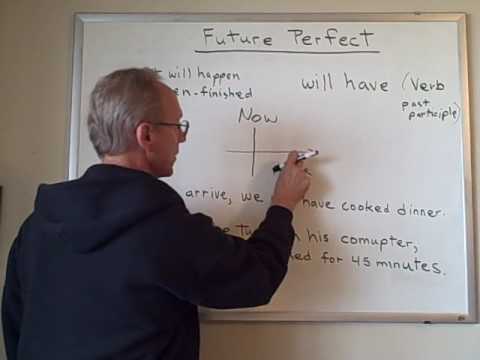 Future Perfect
will happen
finished
will have (Verb
past
participle)
Now
arrive, we have cooked dinner.
his comupter,
for 45 minutes.